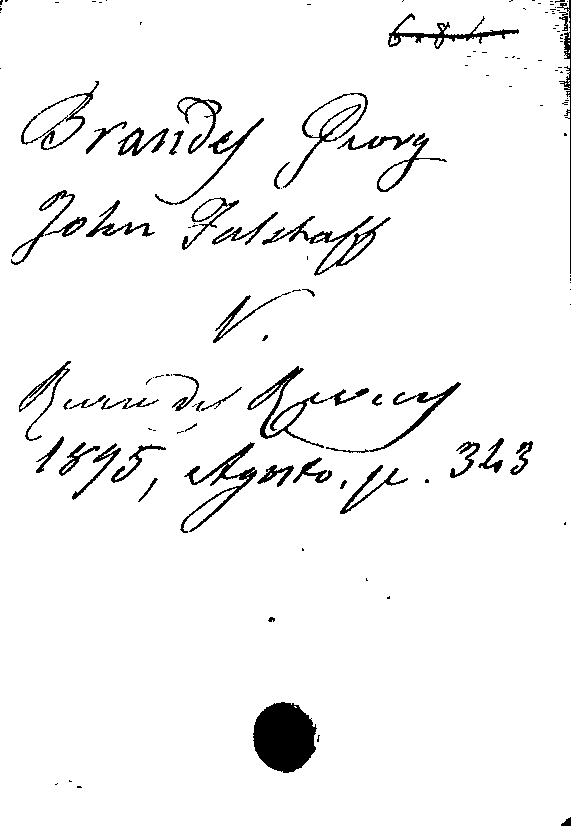 Brandes Georg
John Falstaff
V.
Revue des Revues
1895, Agosto, p. 343